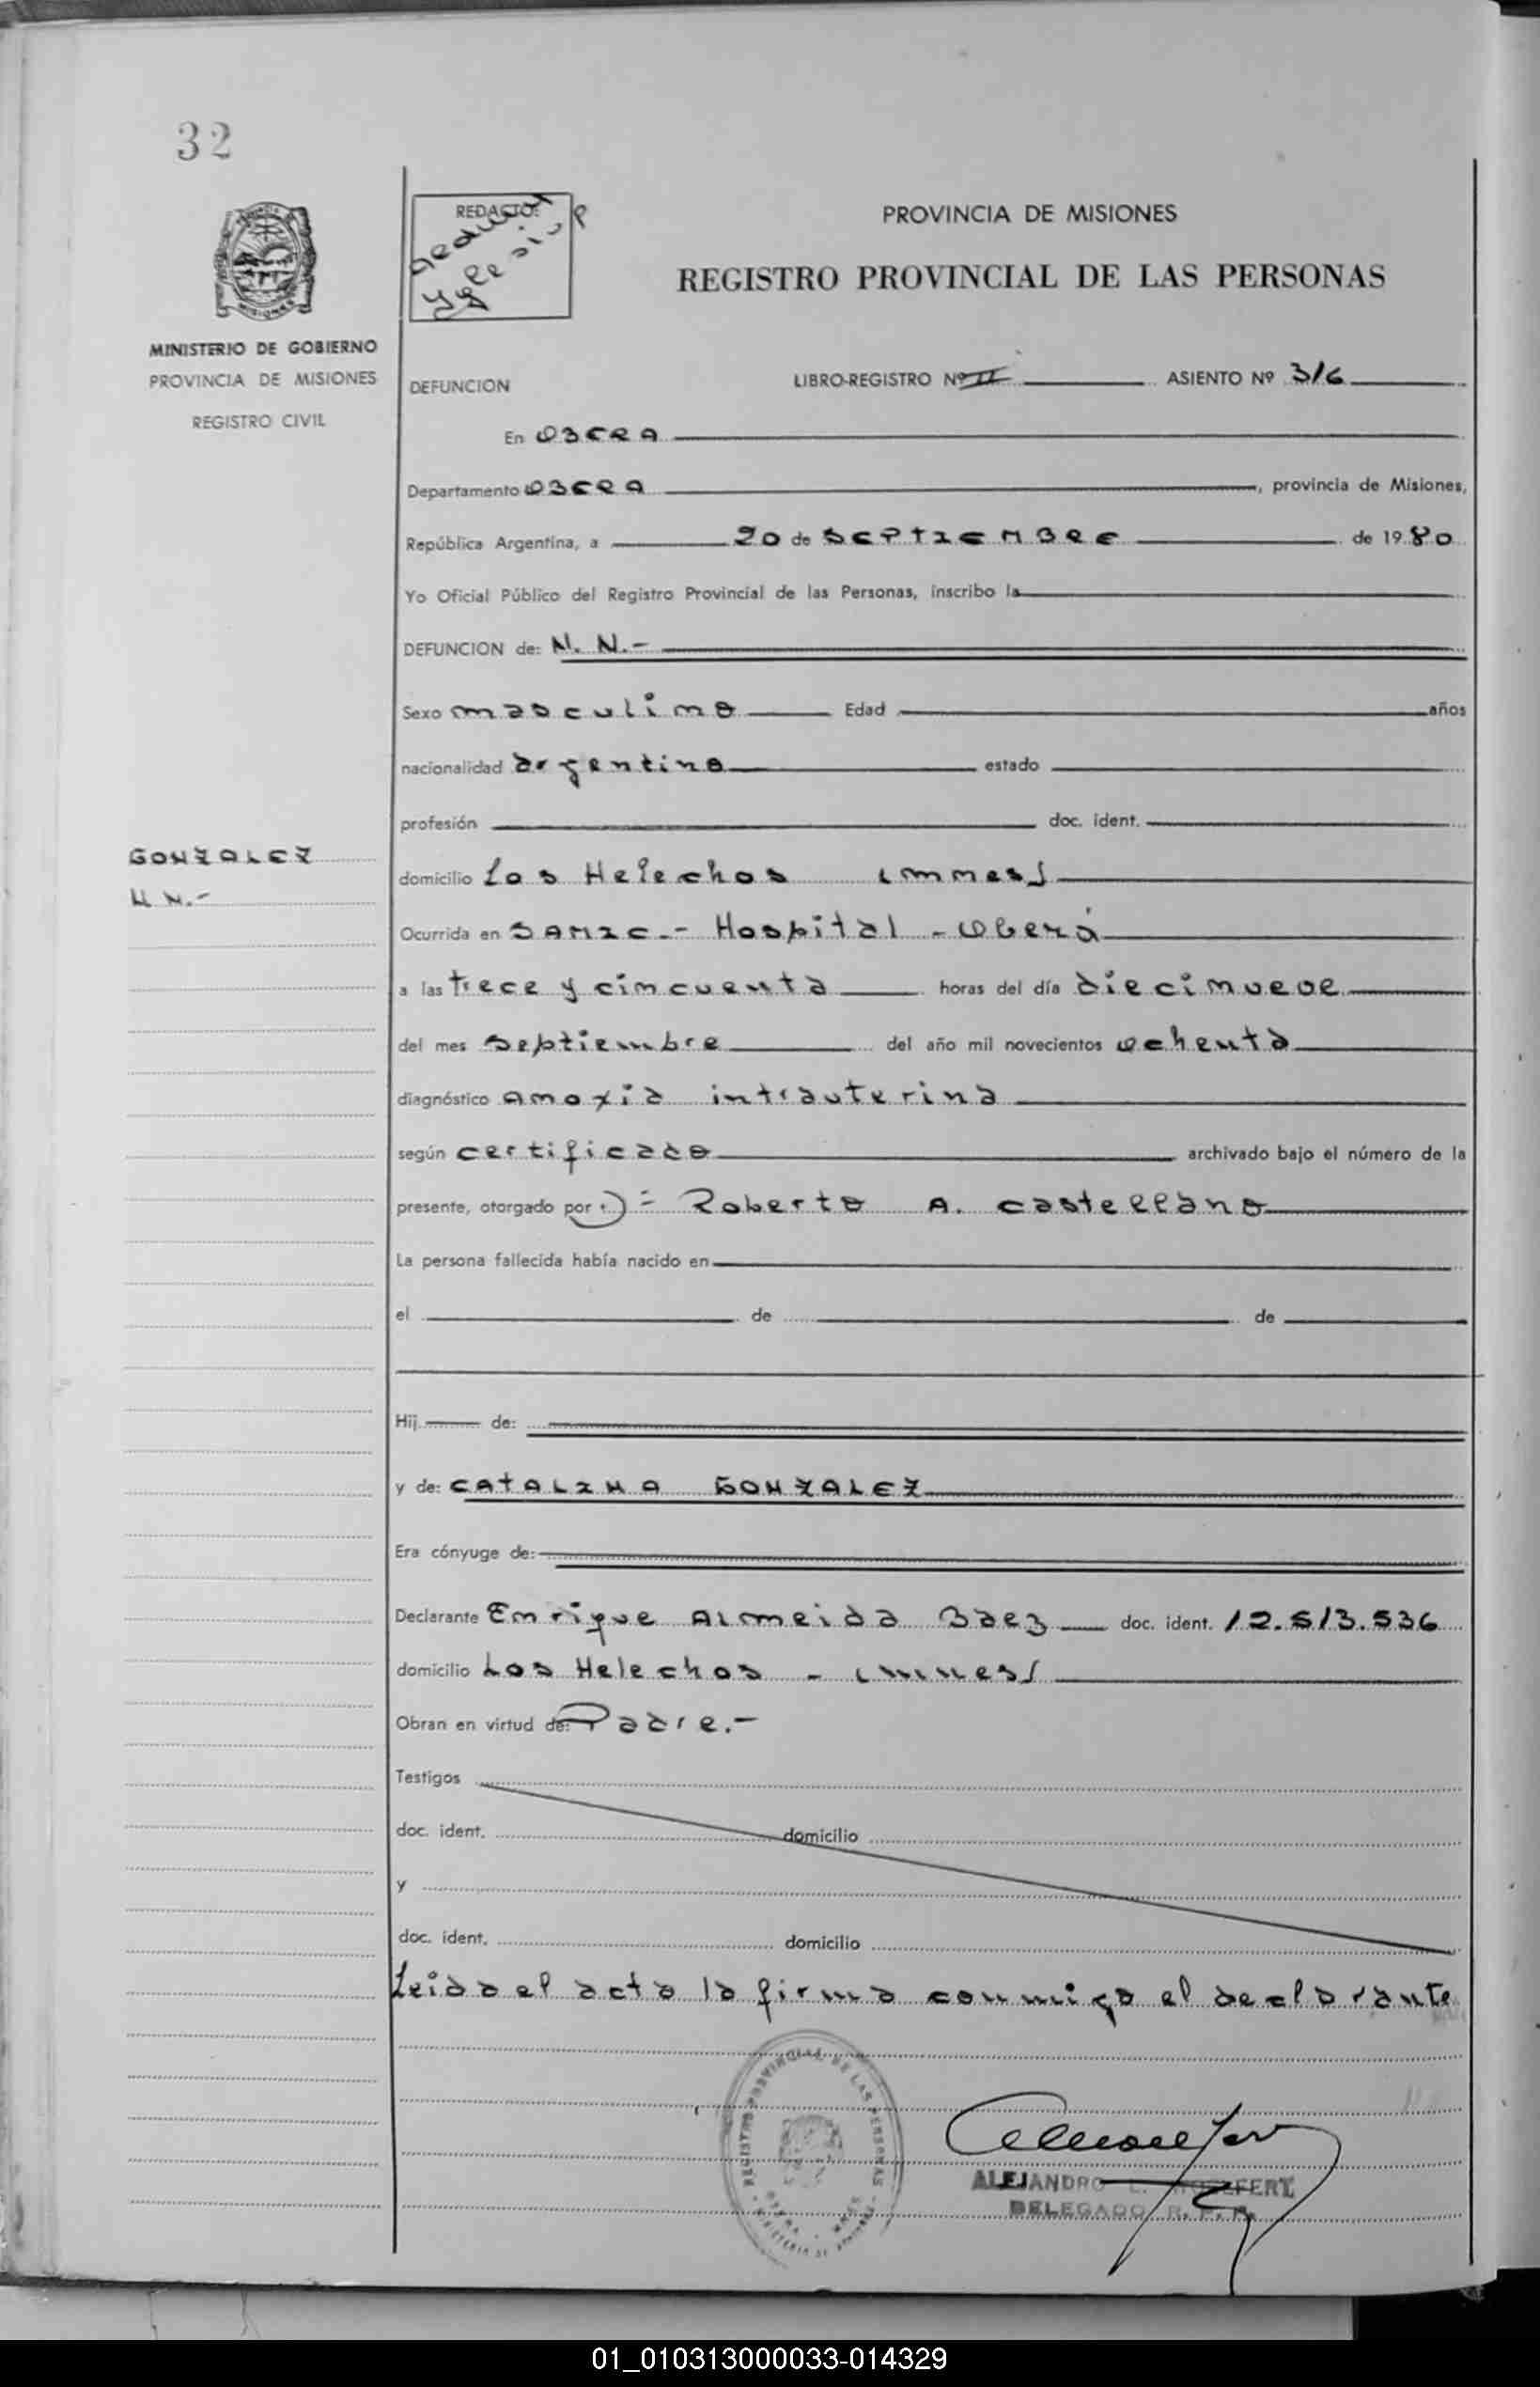 32
REDACTO:
PROVINCIA DE MISIONES
REGISTRO PROVINCIAL DE LAS PERSONAS
MINISTERIO DE GOBIERNO
PROVINCIA DE MISIONES
REGISTRO CIVIL
DEFUNCION LIBRO-REGISTRO Nº II ASIENTO Nº 316
En OBERA
Departamento OBERA, provincia de Misiones,
República Argentina, a 20 de SEPTIEMBRE de 1980
Yo Oficial Público del Registro Provincial de las Personas, inscribo la
DEFUNCION de: N. N.-
Sexo masculino Edad años
nacionalidad argentino estado
profesión doc. ident.
GONZALEZ
N N.-
domicilio Los Helechos (mnes)
Ocurrida en SAMIC.- Hospital - Oberá
a las trece y cincuenta horas del día diecinueve
del mes septiembre del año mil novecientos ochenta
diagnóstico anoxia intrauterina
según certificado archivado bajo el número de la
presente, otorgado por Roberto A. Castellano
La persona fallecida había nacido en
el de de
Hij de:
y de: CATALINA GONZALEZ
Era cónyuge de:
Declarante Enrique Almeida Baez doc. ident. 12.513.536
domicilio Los Helechos - (mnes)
Obran en virtud de: Padre.-
Testigos
doc. ident. domicilio
y
doc. ident. domicilio
Leida el acta la firma conmigo el declarante
REGISTRO PROVINCIAL DE LAS PERSONAS
ALEJANDRO
DELEGADO R. P. P.
01_010313000033-014329